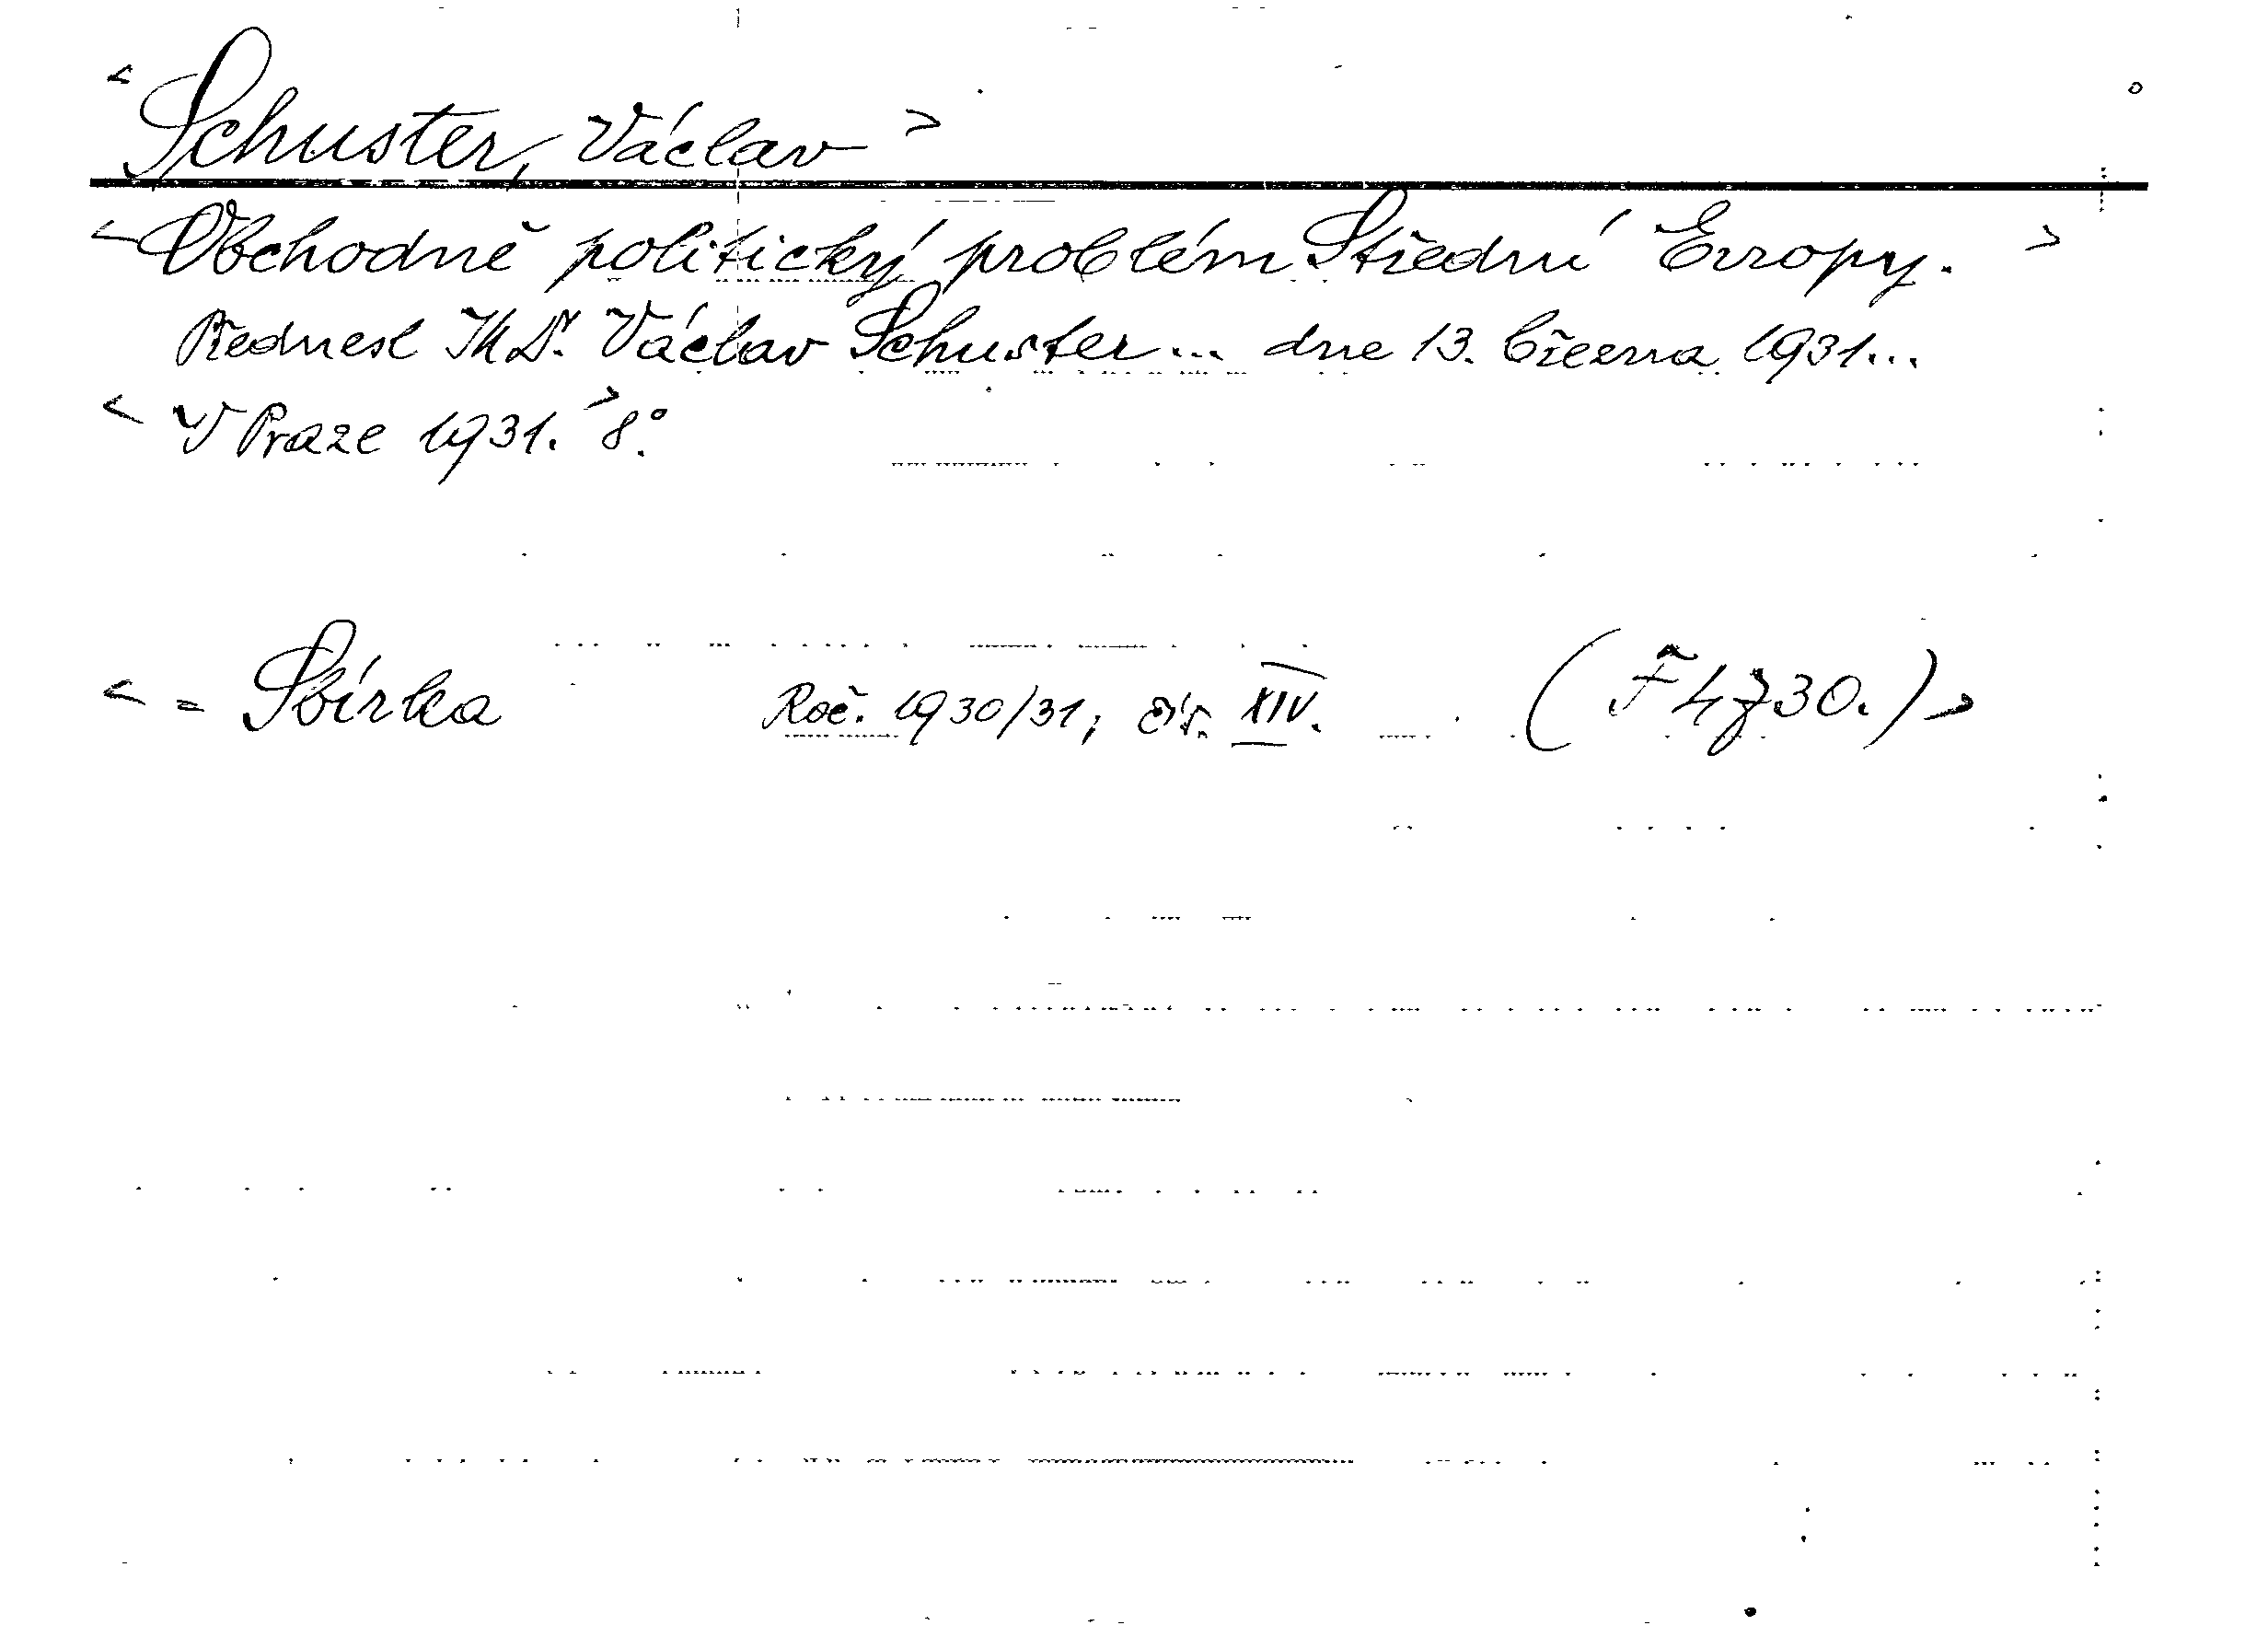 < Schuster, Václav >
< Obchodně politický problém Střední Evropy. >
Přednesl JUDr. Václav Schuster... dne 13. března 1931...
< V Praze 1931. > 8°.
< = Sbírka Roč. 1930/31, čís. XIV. (F 4730.) >